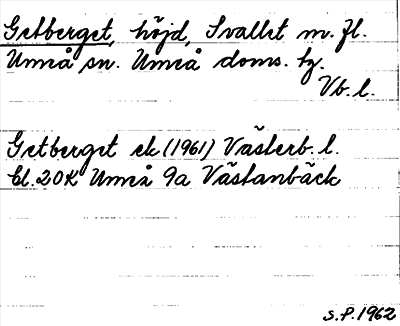 Getberget, höjd, Svallet m. fl.
Umeå sn. Umeå doms. tg.
Vb. l.
Getberget ek (1961) Västerb. l.
Bl. 20K Umeå 9a Västanbäck
S.P. 1962